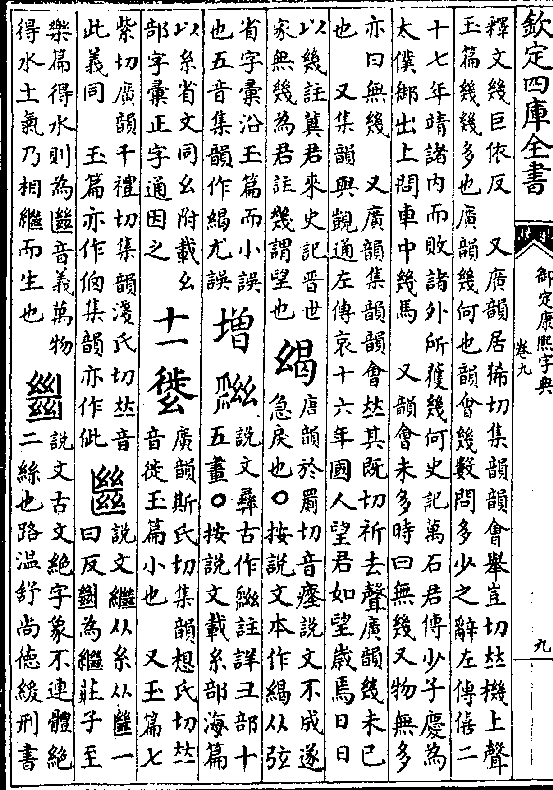 欽定四庫全書
御定康熙字典
卷九
九
釋文幾巨依反　又廣韻居狶切集韻韻會舉豈切𠀤機上聲
玉篇幾幾多也廣韻幾何也韻會幾數問多少之辭左傳僖二
十七年靖諸内而敗諸外所獲幾何史記萬石君傳少子慶為
太僕御出上問車中幾馬　又韻會未多時曰無幾又物無多
亦曰無幾　又廣韻集韻韻會𠀤其既切祈去聲廣韻幾未已
也　又集韻與覬通左傳哀十六年國人望君如望歲焉日日
以幾註冀君來史記晉世
家無幾為君註幾謂望也
唐韻於罽切音瘞說文不成遂
急戾也○按說文本作从弦
省字彙沿玉篇而小誤
也五音集韻作尤誤
增
說文彝古作註詳丑部十
五畫○按說文載糸部海篇
以糸省文同幺附載幺
部字彙正字通因之
十一
廣韻斯氏切集韻想氏切𠀤
音徙玉篇小也　又玉篇七
紫切廣韻千禮切集韻淺氏切𠀤音
此義同　玉篇亦作集韻亦作佌
㡭
說文繼从糸从㡭一
曰反𢇍為繼莊子至
樂篇得水則為㡭音義萬物
得水土氣乃相繼而生也
𢇍
說文古文絕字象不連體絕
二絲也路溫舒尚德緩刑書